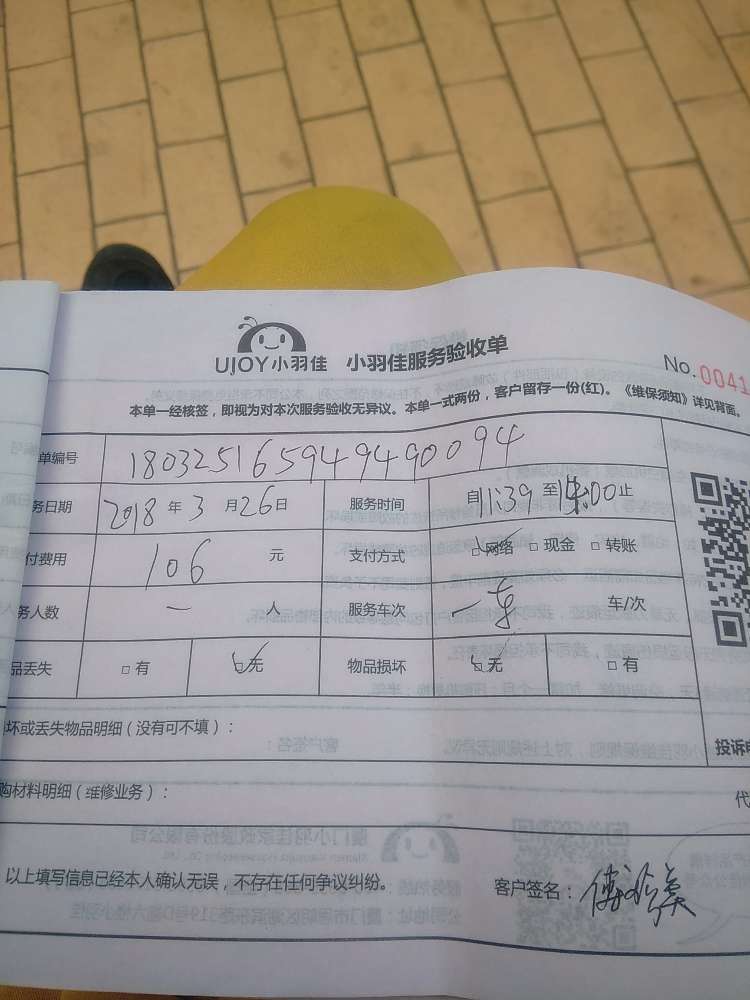 UJOY小羽佳 小羽佳服务验收单
No.0041
本单一经核签，即视为对本次服务验收无异议。本单一式两份，客户留存一份(红)。《维保须知》详见背面。
单编号 180325165949490094
务日期 2018 年 3 月 26 日 服务时间 自 11:39 至 14:00 止
付费用 106 元 支付方式 □网络 □现金 □转账
务人数 一 人 服务车次 一车 车/次
品丢失 □有 □无 物品损坏 □无 □有
坏或丢失物品明细（没有可不填）：
投诉电
购材料明细（维修业务）：
代
以上填写信息已经本人确认无误，不存在任何争议纠纷。 客户签名：